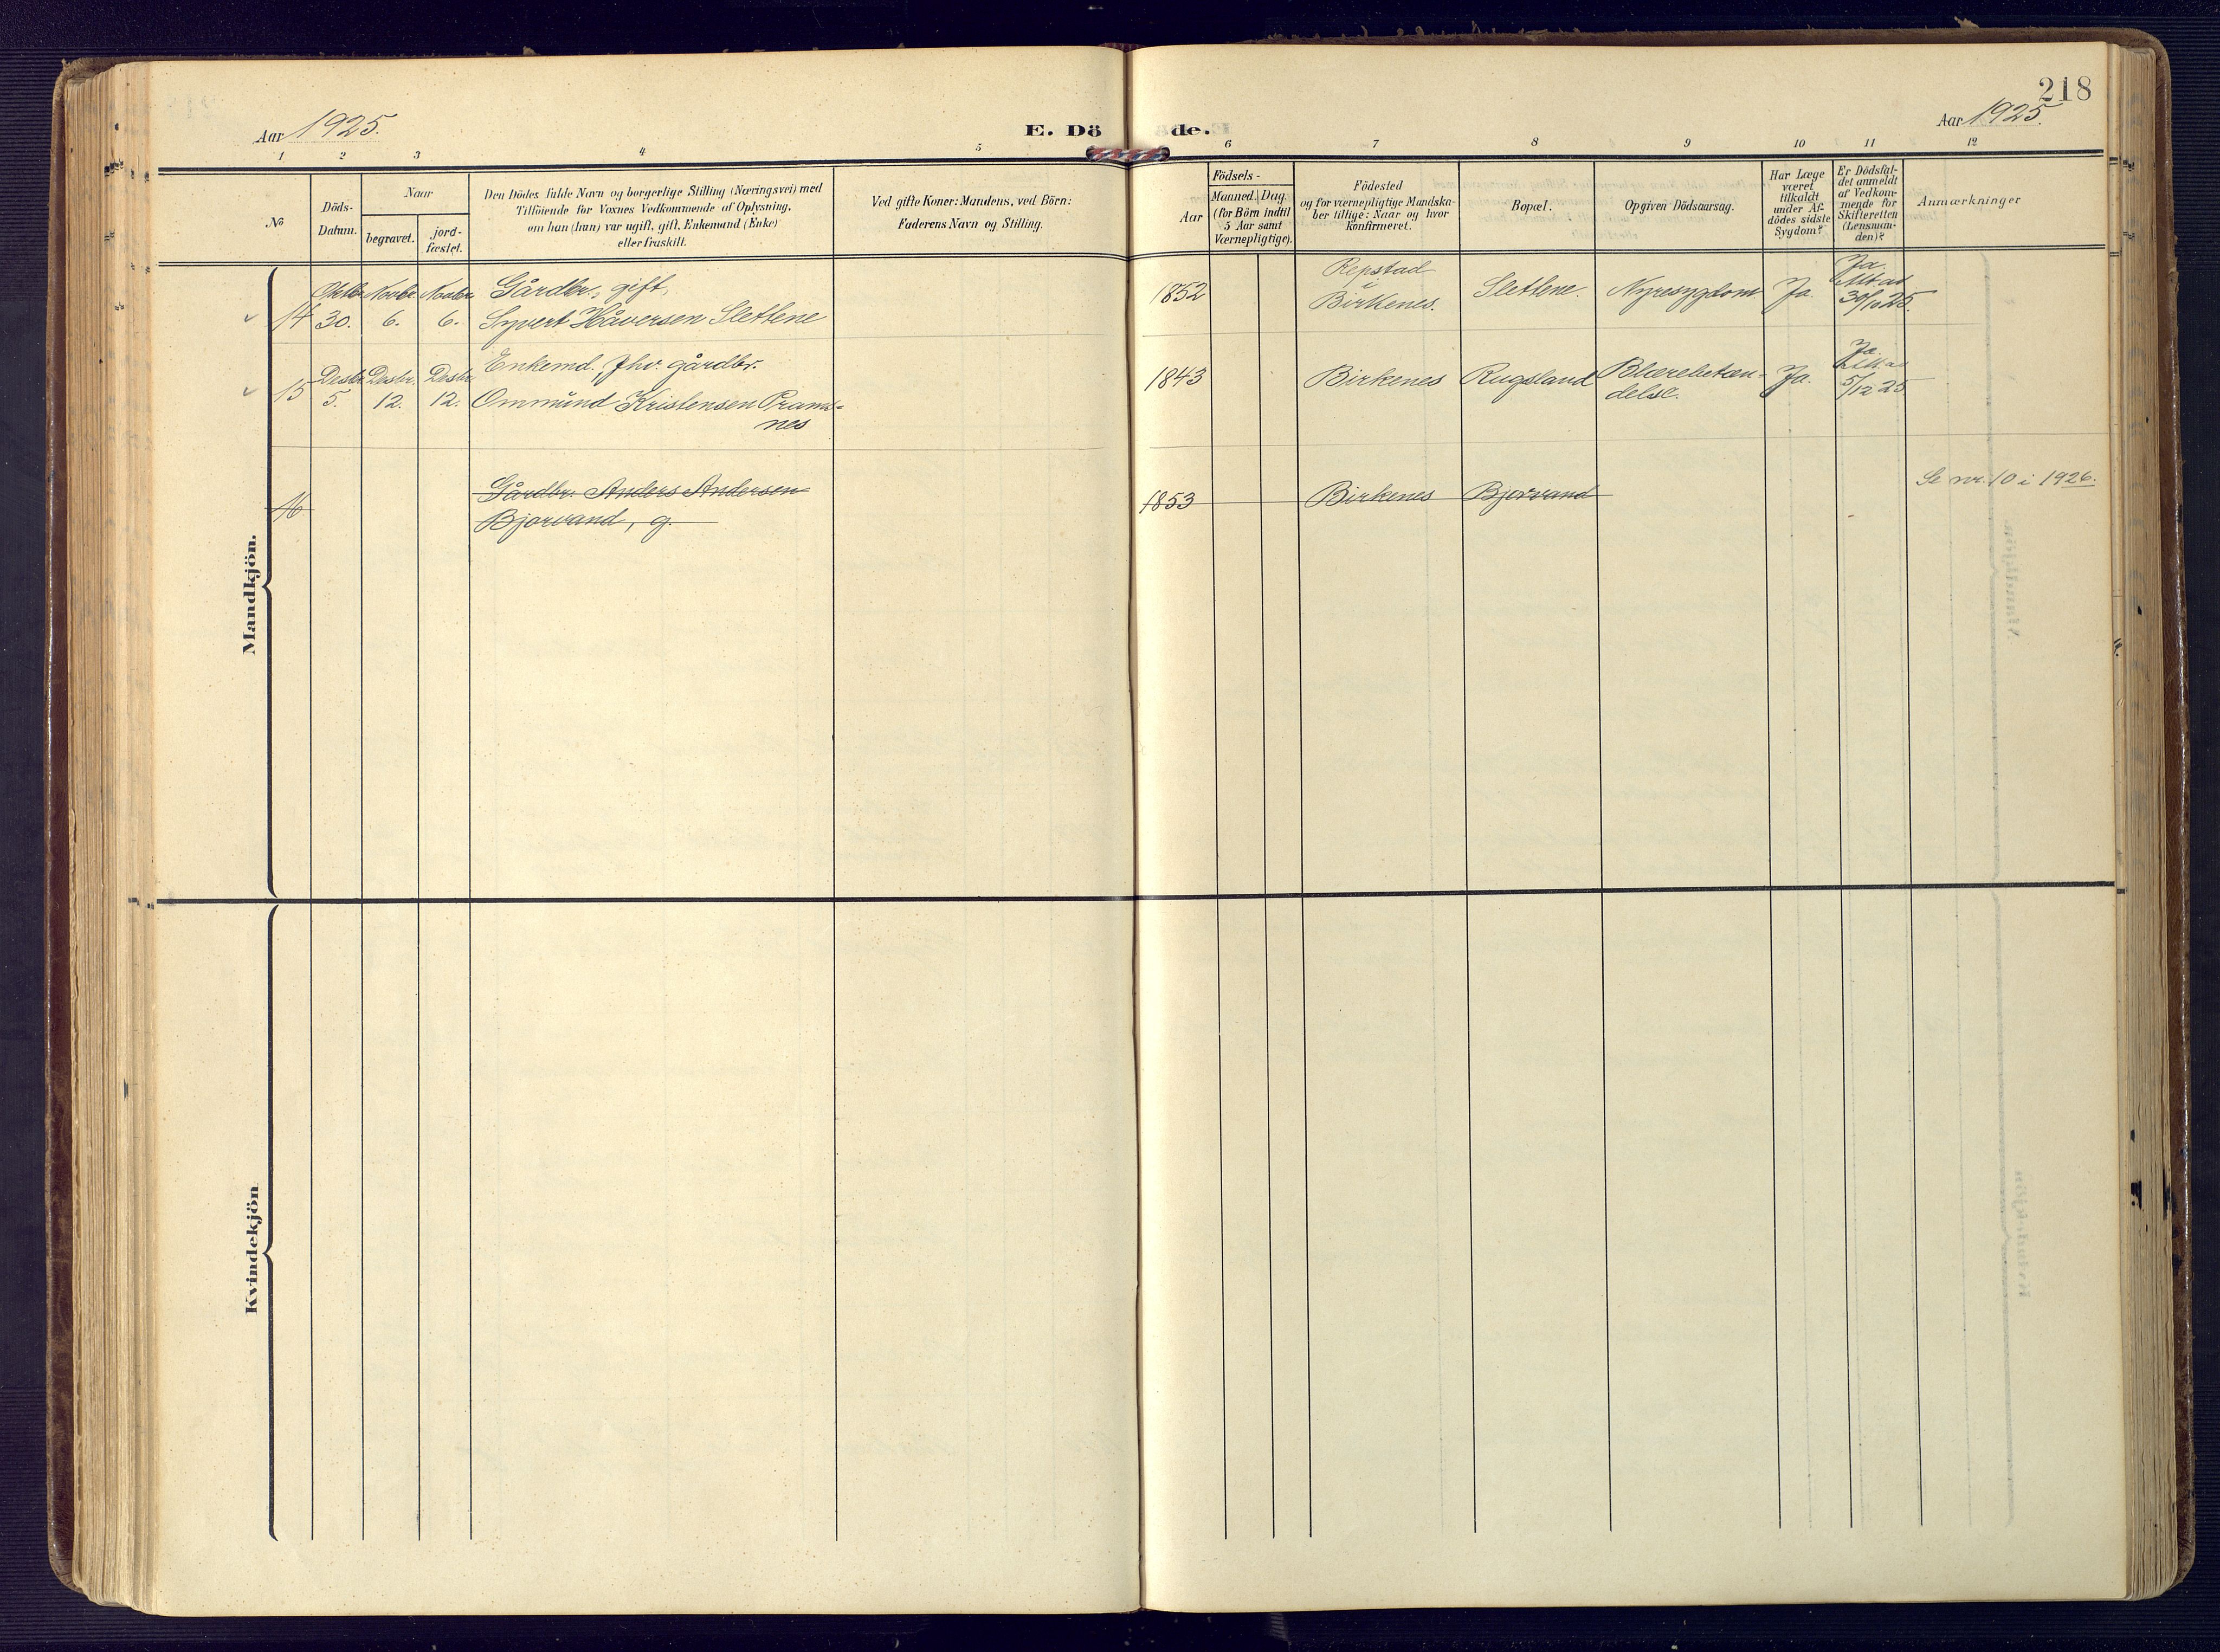 218
Aar 1925.
E. Döde.
Aar 1925.
1 2 3 4 5 6 7 8 9 10 11 12
No
Döds-
Datum.
Naar
begravet.
jord-
fæstet.
Den Dödes fulde Navn og borgerlige Stilling (Næringsvei) med
Tilföiende for Voxnes Vedkommende af Oplysning,
om han (hun) var ugift, gift, Enkemand (Enke)
eller fraskilt.
Ved gifte Koner: Mandens, ved Börn:
Faderens Navn og Stilling.
Födsels-
Aar
Maaned. Dag.
(for Börn indtil
5 Aar samt
Værnepligtige).
Födested
og for værnepligtige Mandska-
ber tillige: Naar og hvor
konfirmeret.
Bopæl.
Opgiven Dödsaarsag.
Har Læge
været
tilkaldt
under Af-
dödes sidste
Sygdom?
Er Dödsfal-
det anmeldt
af Vedkom-
mende for
Skifteretten
(Lensman-
den)?
Anmærkninger
Mandkjön.
14 Oktbr. 30. Novbr. 6. Novbr. 6.
Gårdbr., gift,
Syvert Håversen Slettene
1852
Repstad
Birkenes.
Slettene.
Nyresygdom
Ja.
Ja.
Att. av
30/10 25.
15 Desbr. 5. Desbr. 12. Desbr. 12.
Enkemd. fhv. gårdbr.
Ommund Kristensen Prams-
nes
1843
Birkenes
Rugsland
Blærebeten-
delse.
Ja.
Ja.
5/12 25
16
Gårdbr. Anders Andersen
Bjorvand, g.
1853
Birkenes
Bjorvand
Se nr. 10 i 1926.
Kvindekjön